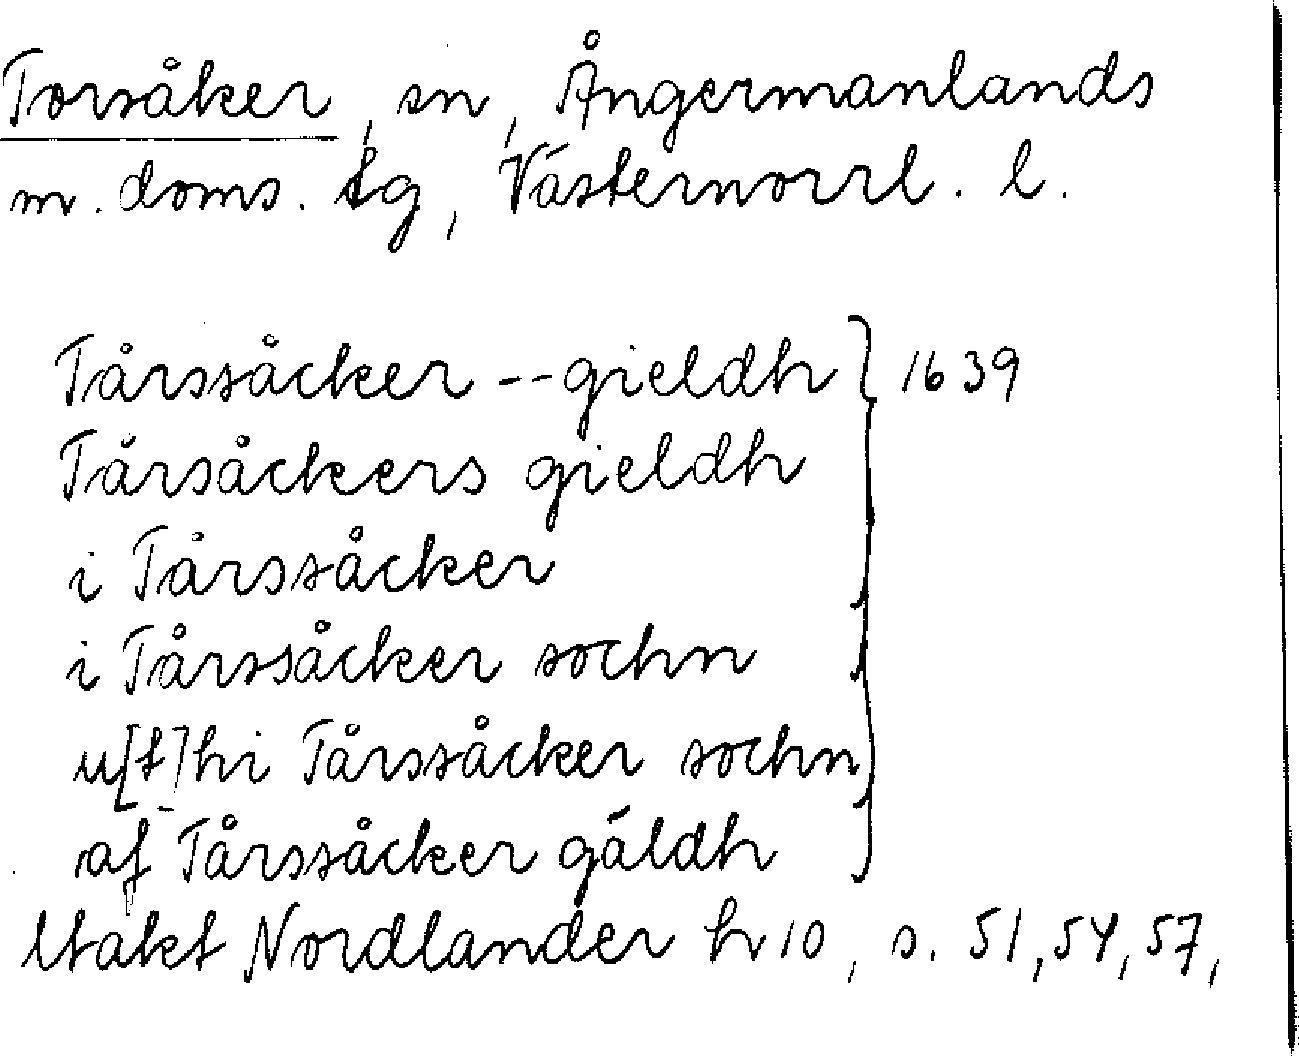 Torsåker, sn, Ångermanlands
m. doms. tg, Västernorrl. l.
Tårssåcker -- gieldh } 1639
Tårsåckers gieldh
i Tårssåcker
i Tårssåcker sochn
u[t]hi Tårssåcker sochn
af Tårssåcker gäldh
Utakt Nordlander hr 10, s. 51, 54, 57,